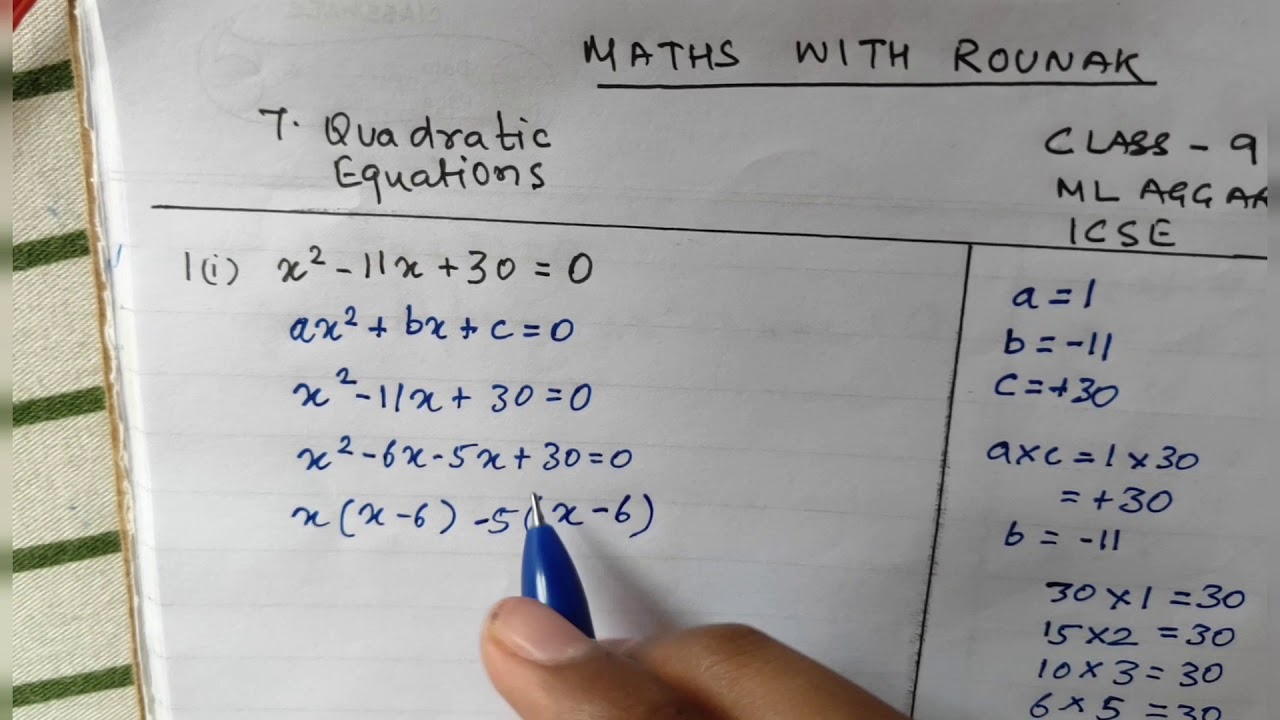 MATHS WITH ROUNAK
7. Quadratic
Equations
CLASS - 9
ML AGGAR
ICSE
1(i) x² - 11x + 30 = 0
ax² + bx + c = 0
x² - 11x + 30 = 0
x² - 6x - 5x + 30 = 0
x(x - 6) - 5(x - 6)
a = 1
b = -11
c = +30
a×c = 1×30
= +30
b = -11
30×1 = 30
15×2 = 30
10×3 = 30
6×5 = 30